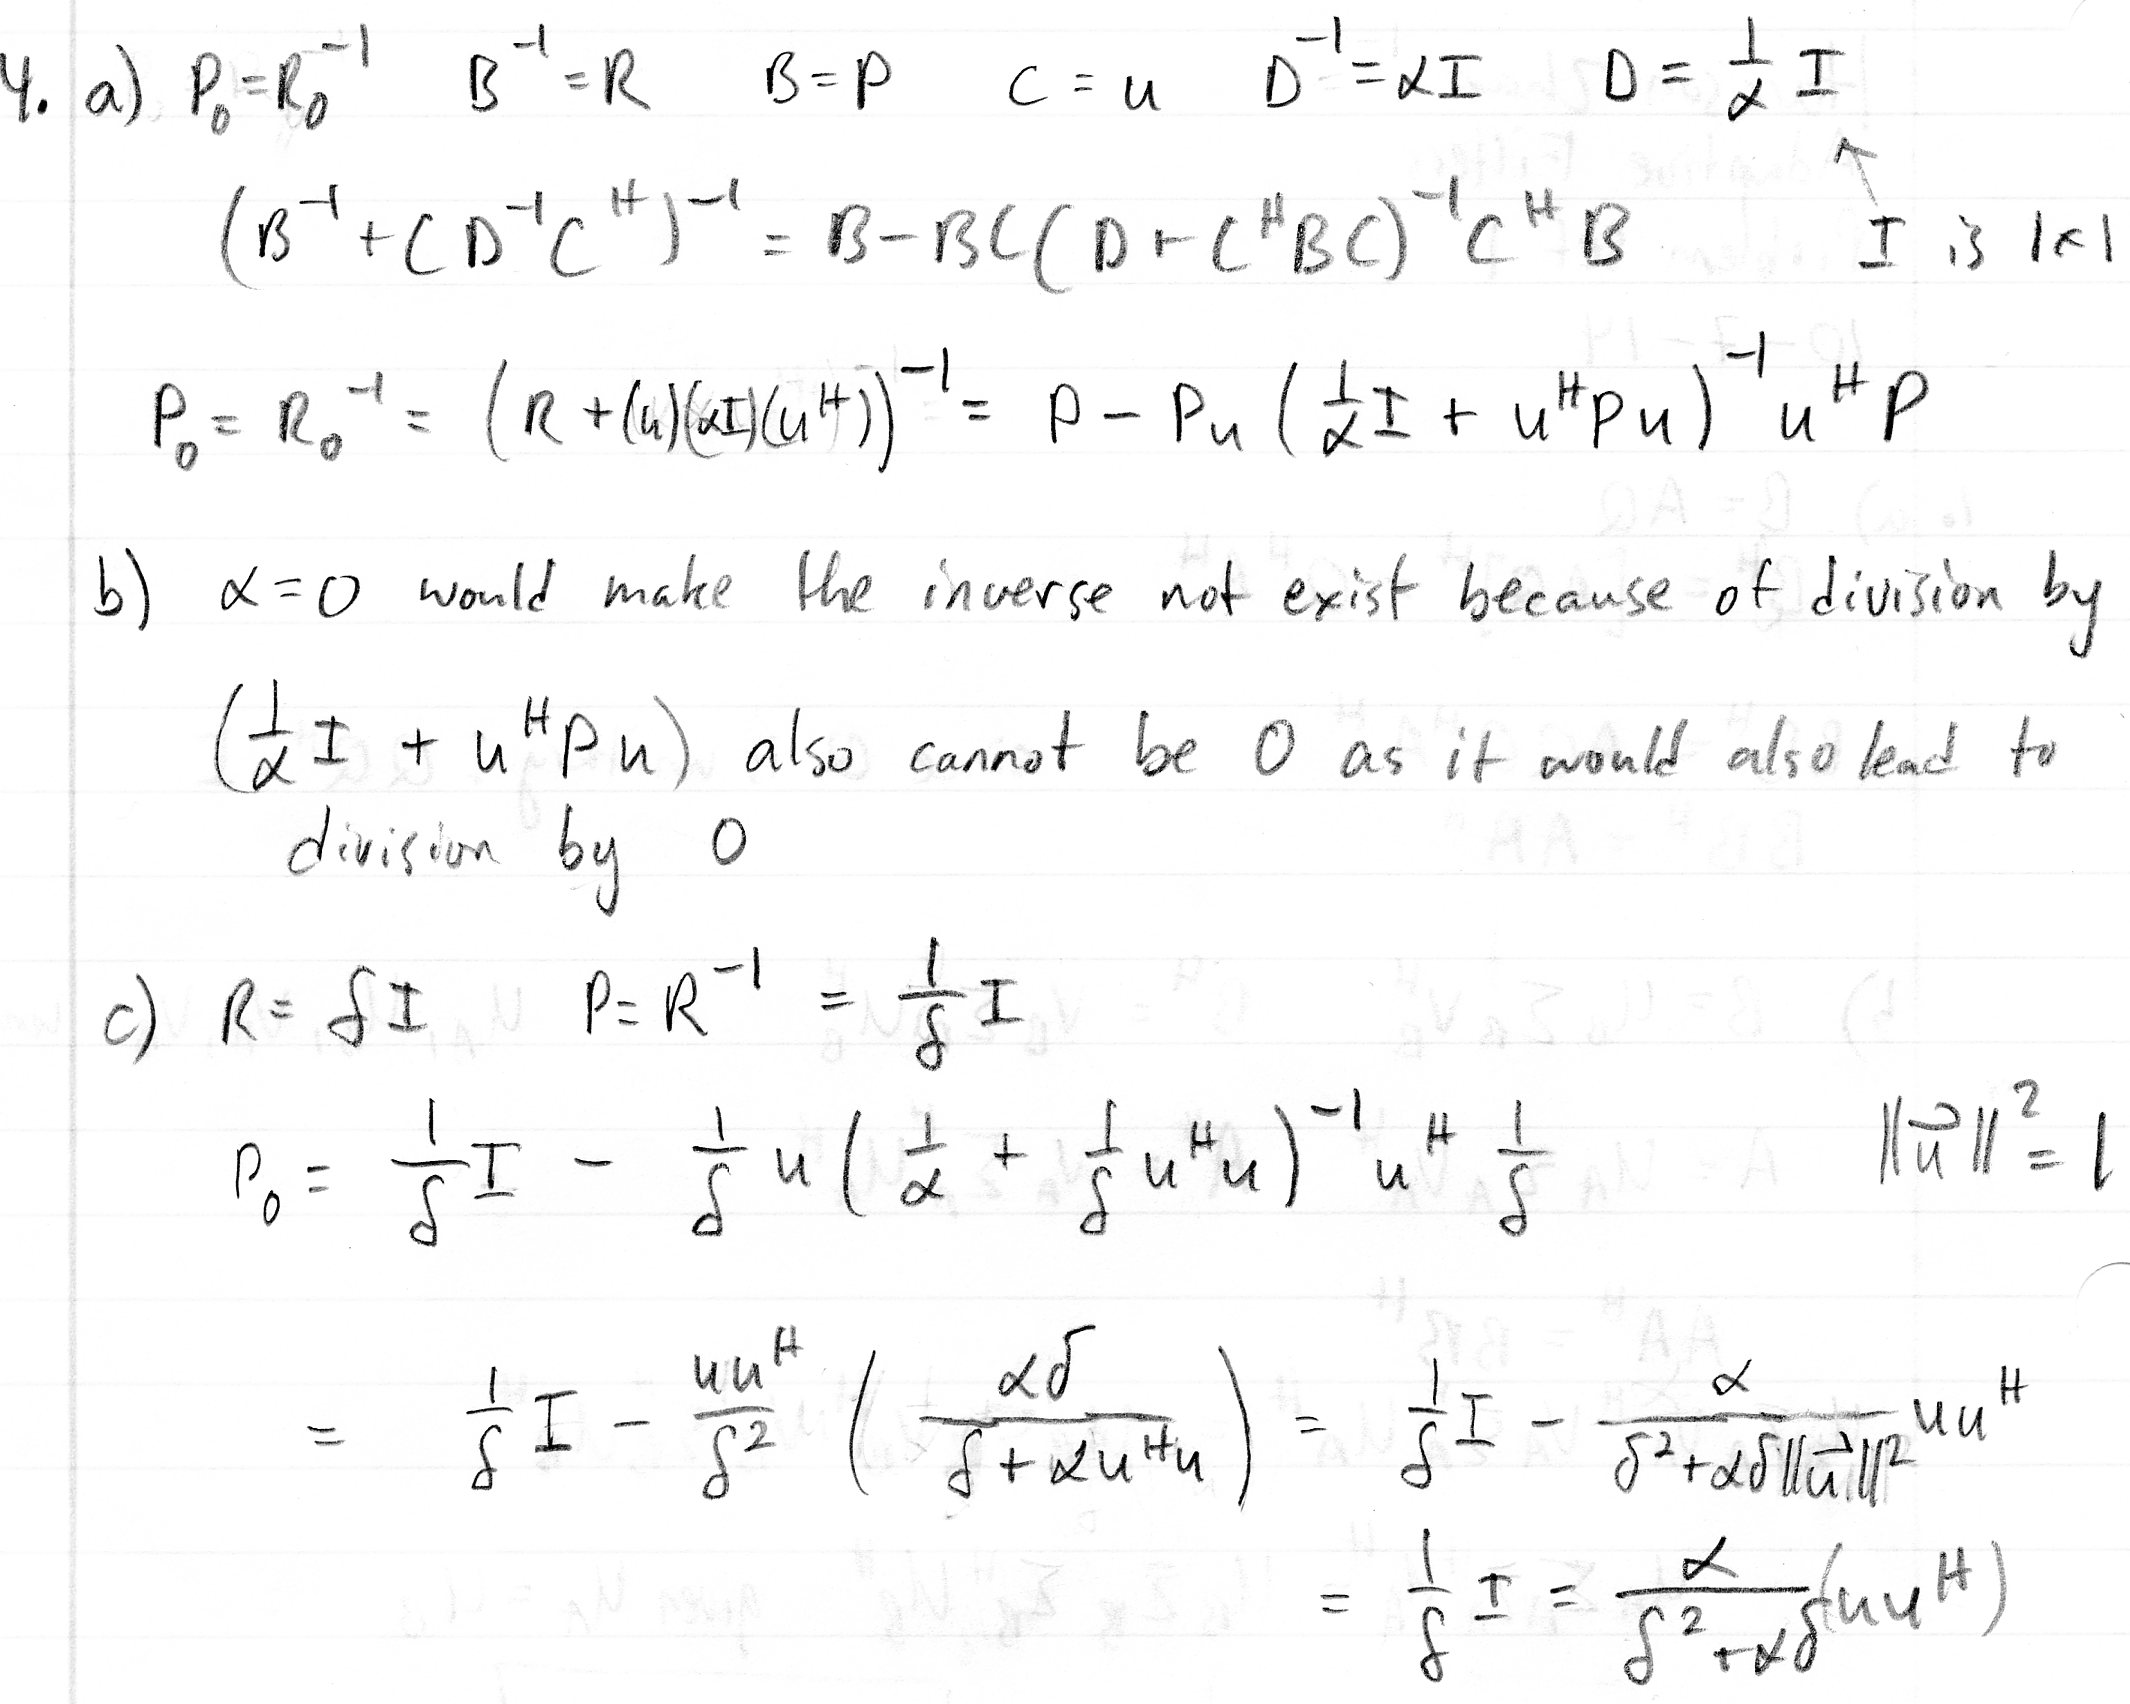 4. a) P₀ = R₀⁻¹ B⁻¹ = R B = P C = u D⁻¹ = αI D = 1/α I
↑
(B⁻¹ + CD⁻¹Cᴴ)⁻¹ = B − BC(D + CᴴBC)⁻¹CᴴB I is 1×1
P₀ = R₀⁻¹ = (R + (u)(αI)(uᴴ))⁻¹ = P − Pu(1/α I + uᴴPu)⁻¹uᴴP
b) α = 0 would make the inverse not exist because of division by
(1/α I + uᴴPu) also cannot be 0 as it would also lead to
division by 0
c) R = δI P = R⁻¹ = 1/δ I
P₀ = 1/δ I − 1/δ u(1/α + 1/δ uᴴu)⁻¹uᴴ 1/δ ‖u⃗‖² = 1
= 1/δ I − uuᴴ/δ² (αδ/(δ + αuᴴu)) = 1/δ I − α/(δ² + αδ‖u⃗‖²) uuᴴ
= 1/δ I = α/(δ² + αδ) (uuᴴ)